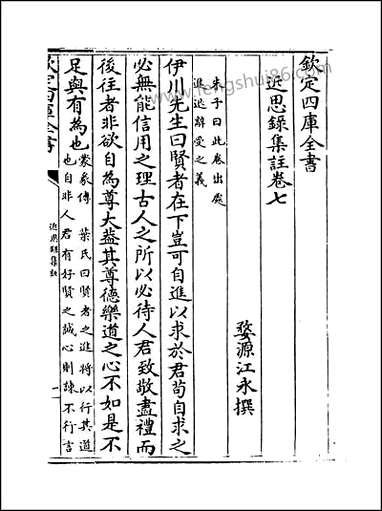 欽定四庫全書
近思錄集註卷七
婺源江永撰
朱子曰此卷出處
進退辭受之義
伊川先生曰賢者在下豈可自進以求於君苟自求之
必無能信用之理古人之所以必待人君致敬盡禮而
後往者非欲自為尊大蓋其尊德樂道之心不如是不
足與有為也
蒙彖傳 葉氏曰賢者之進將以行其道
也自非人君有好賢之誠心則諫不行言
欽定四庫全書
近思錄集註
一
www.fengshui86.com